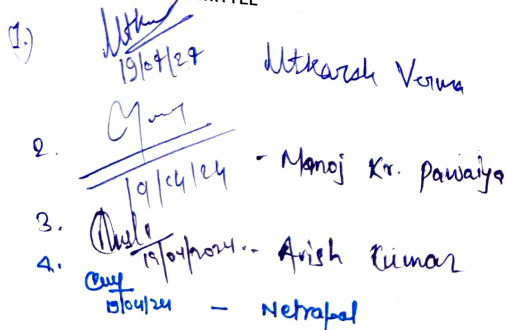 1.)
19/04/24 Utkarsh Verma
2.
19/04/24 - Manoj Kr. Pawaiya
3.
19/04/2024 - Arish Kumar
4.
19/04/24 - Netrapal